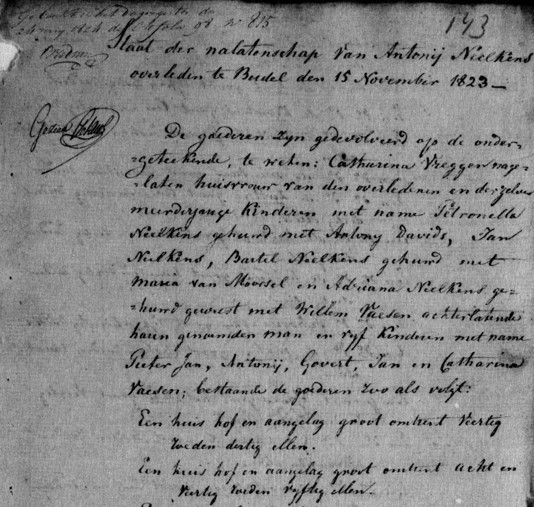 143
Staat der nalatenschap van Antonij Neelkens
overleden te Budel den 15 November 1823 —
De goederen zyn gedevolveerd op de onder-
-geteekende, te weten: Catharina Vreggen nage-
-laten huisvrouw van den overledenen en derzelver
meerderjarige kinderen met name Petronella
Neelkens gehuwd met Antony Davids, Jan
Neelkens, Bartel Neelkens gehuwd met
maria van Moorsel en Adriana Neelkens ge-
-huwd geweest met Willem Vaesen achterlatende
haren genoemden man en vyf kinderen met name
Peeter Jan, Antonij, Govert, Jan en Catharina
Vaesen; bestaande de goederen zoo als volgt:
Een huis hof en aangelag groot omtrent veertig
roeden dertig ellen.
Een huis hof en aangelag groot omtrent acht en
veertig roeden vyftig ellen.